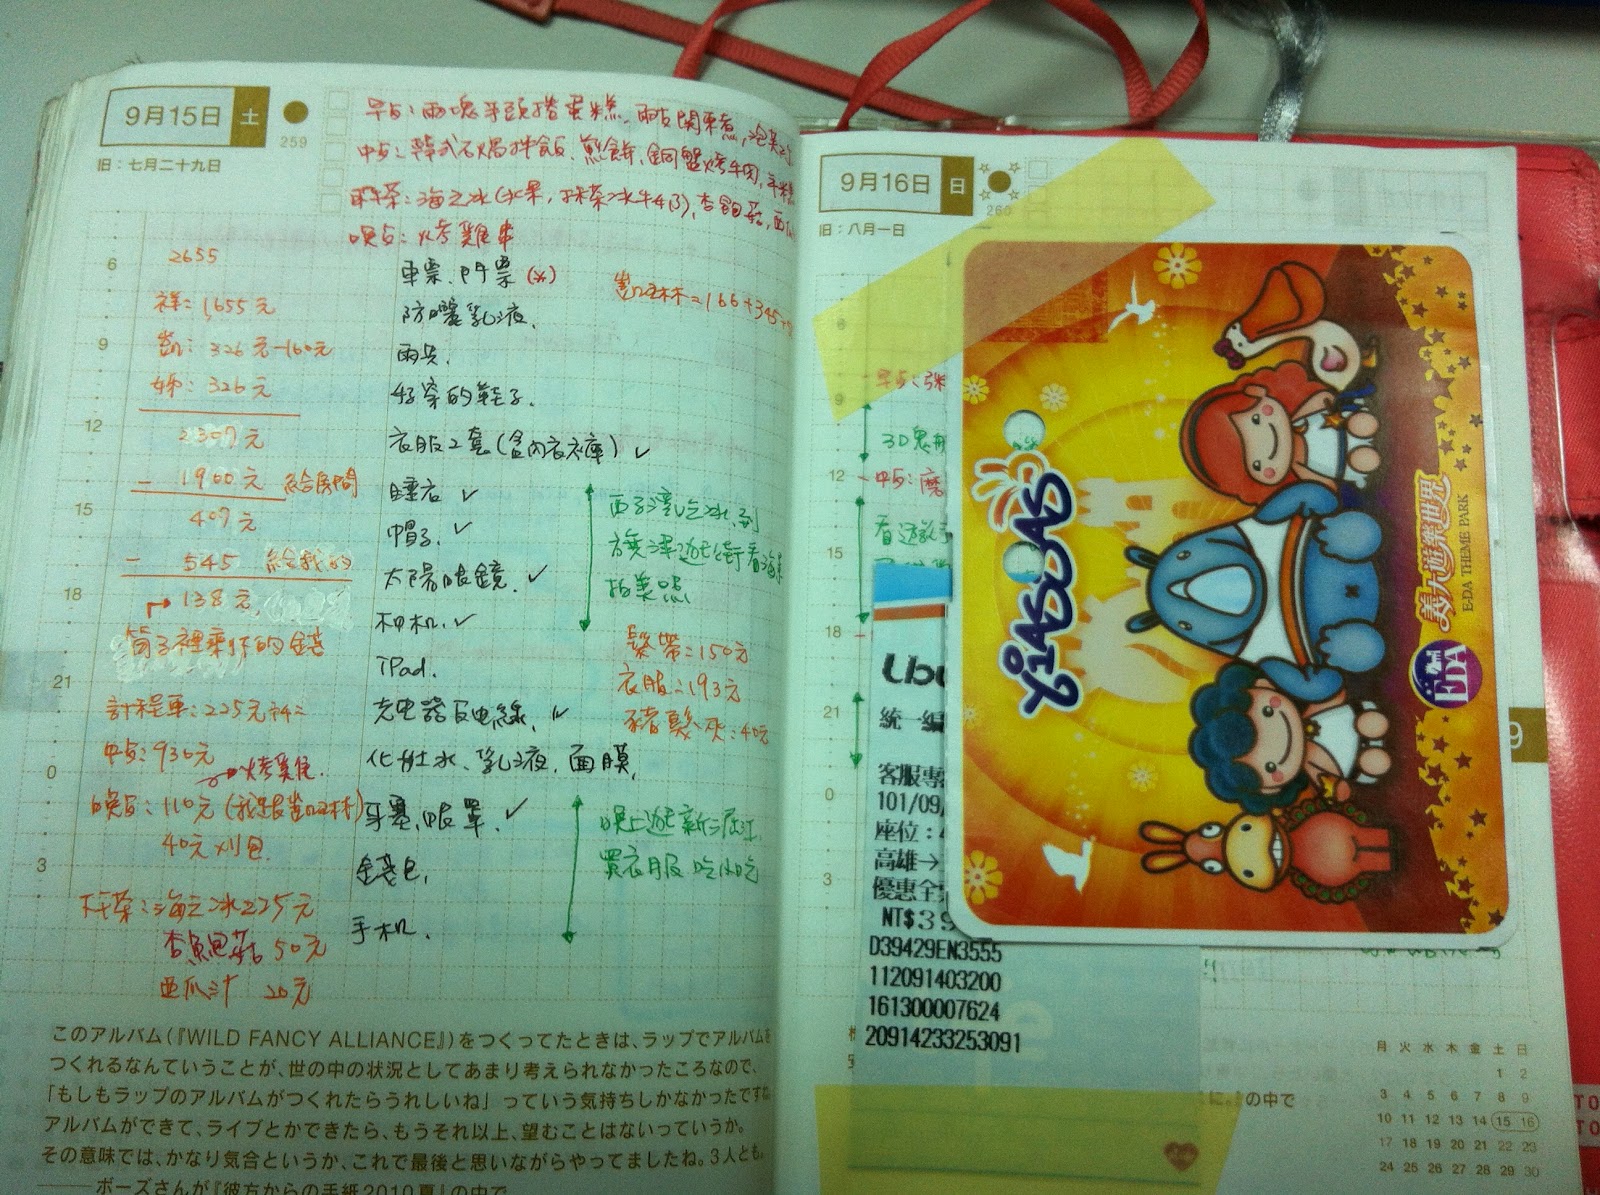 9月15日 土
259
旧：七月二十九日
早点：兩塊芋頭搭蛋糕、兩支関東煮，泡芙
中点：韓式石鍋拌飯、煎餅、銅盤烤牛肉，年糕
下午茶：海之冰(水果，抹茶冰牛奶)，杏鮑菇，西瓜
晚点：烤雞串
2655
祥：1,655元
凱：326元-160元
姊：326元
2307元
- 1900元 給房間
407元
- 545 給我的
138元
筒子裡剩下的錢
計程車：225元
中点：930元
烤雞
晚点：110元
40元刈包
下午茶：海之冰225元
杏鮑菇 50元
西瓜汁 20元
車票、門票
=166+345+
防曬乳液、
雨具、
好穿的鞋子、
衣服2套(含內衣衣褲) ✓
睡衣 ✓
帽子、✓
太陽眼鏡、✓
相机、✓
iPad、
充电器及电線、✓
化妝水、乳液、面膜、
牙塞、眼罩、✓
錢包、
手机、
西子灣吃冰、到
旗津逛街看海景
拍美照
髮帶：150元
衣服：193元
豬髮夾：40元
晚上逛新崛江、
買衣服 吃小吃
6
9
12
15
18
21
0
3
このアルバム(『WILD FANCY ALLIANCE』)をつくってたときは、ラップでアルバムを
つくれるなんていうことが、世の中の状況としてあまり考えられなかったころなので、
「もしもラップのアルバムがつくれたらうれしいね」っていう気持ちしかなかったですね
アルバムができて、ライブとかできたら、もうそれ以上、望むことはないっていうか。
その意味では、かなり気合というか、これで最後と思いながらやってましたね。3人とも。
――ボーズさんが『彼方からの手紙2010夏』の中で
9月16日 日
260
旧：八月一日
6
9
12
15
18
21
0
3
早点：
3D鬼
中点：
看遊
YIASUAS
義大遊樂世界
E-DA THEME PARK
EDA
Ubu
統一編
客服專
101/09/
座位：
高雄→
優惠全
NT$39
D39429EN3555
112091403200
161300007624
209142332​53091
に。』の中で
9
月 火 水 木 金 土 日
1 2
3 4 5 6 7 8 9
10 11 12 13 14 15 16
17 18 19 20 21 22 23
24 25 26 27 28 29 30
TO
TO